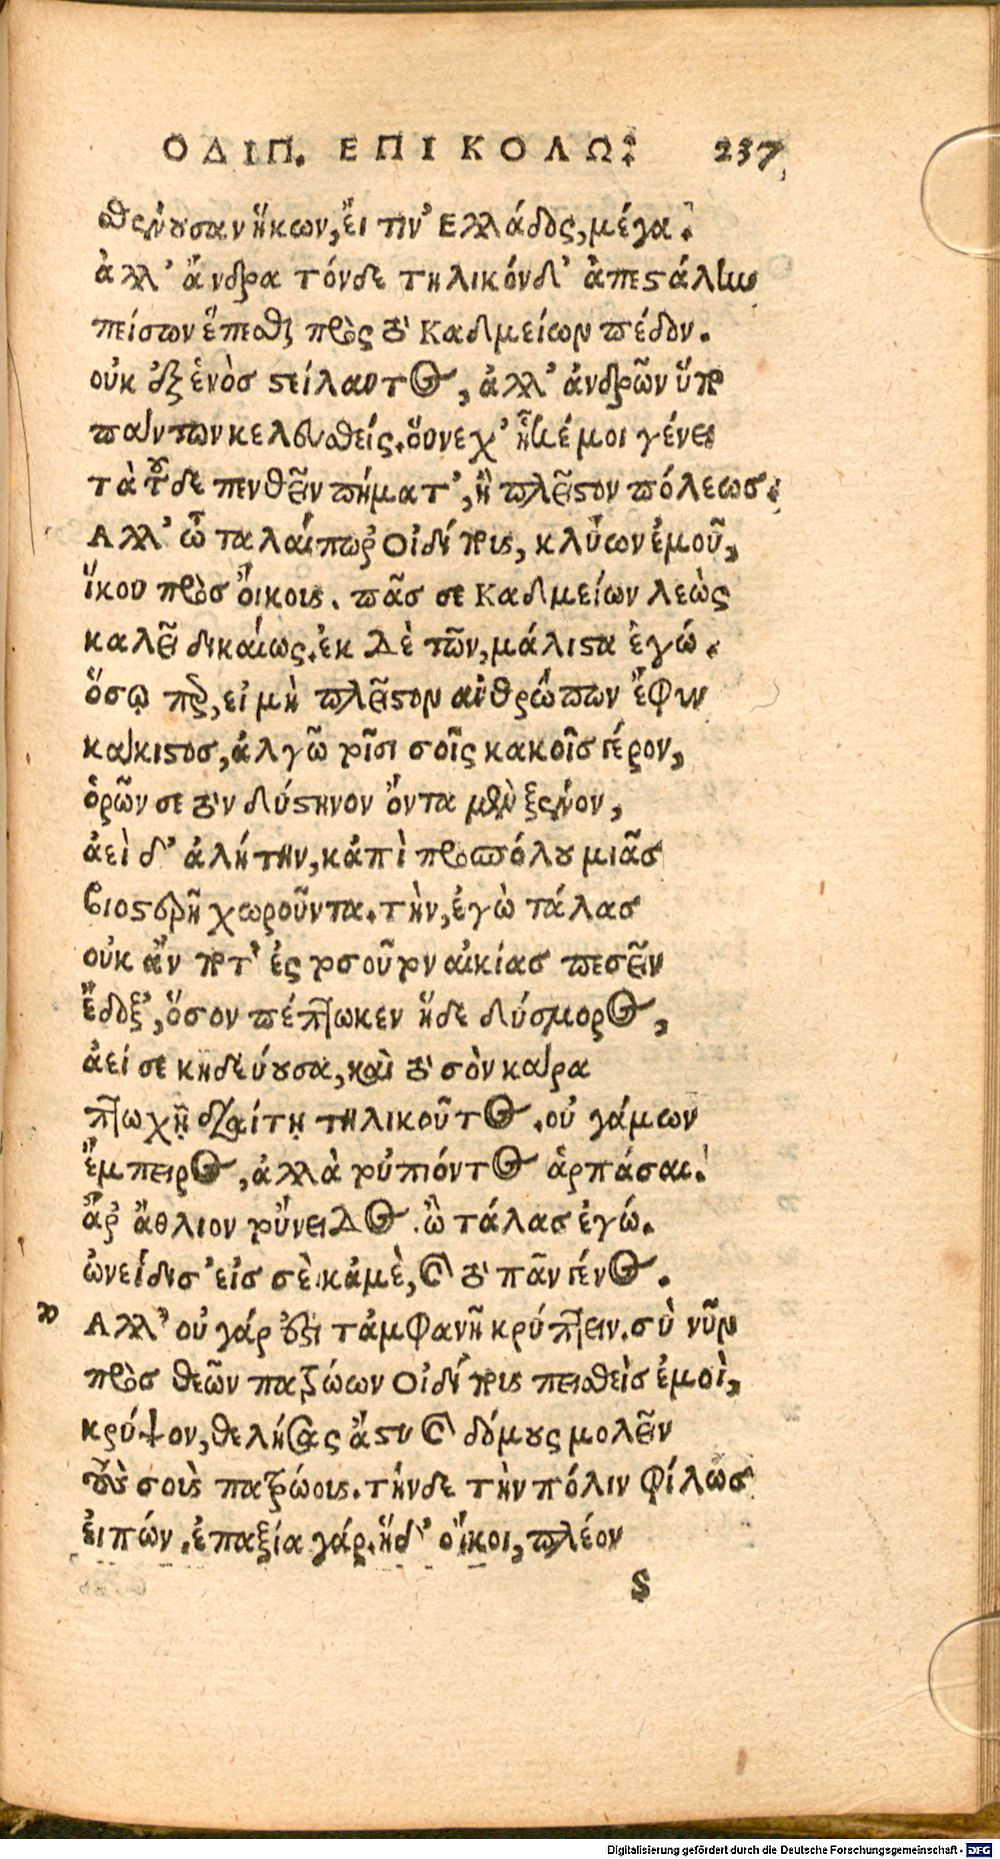 ΟΔΙΠ. ΕΠΙ ΚΟΛΩ: 237
σθένουσαν ἥκων, εἴ τιν' Ελλάδος, μέγα.
ἀλλ' ἄνδρα τόνδε τηλικόνδ' ἀπεστάλην
πείσων ἕπεσθαι πρὸς τὸ Καδμείων πέδον.
οὐκ ἐξ ἑνὸσ στείλαντος, ἀλλ' ἀνδρῶν ὕπο
πάντων κελευσθείς. ὅυνεχ' ἧκέ μοι γένει
τὰ τοῦδε πενθεῖν πήματ', ἢ πλεῖστον πόλεωσ.
Αλλ' ὦ ταλαίπωρε Οἰδίπους, κλύων ἐμοῦ,
ἵκου πρὸσ οἴκους. πᾶσ σε Καδμείων λεὼς
καλεῖ δικαίως. ἐκ δὲ τῶν, μάλιστα ἐγώ.
ὅσῳ περ, εἰ μὴ πλεῖστον ἀνθρώπων ἔφυν
κάκιστοσ, ἀλγῶ τοῖσι σοῖς κακοῖσ γέρον,
ὁρῶν σε τὸν δύστηνον ὄντα μὲν ξένον,
ἀεὶ δ' ἀλήτην, κἀπὶ προσπόλου μιᾶσ
βιοστερῆ χωροῦντα. τὴν, ἐγὼ τάλασ
οὐκ ἄν ποτ' ἐς τοσοῦτον αἰκίασ πεσεῖν
ἔδοξ', ὅσον πέπτωκεν ἥδε δύσμορος,
ἀεί σε κηδεύουσα, καὶ τὸ σὸν κάρα
πτωχῇ διαίτῃ τηλικοῦτος. οὐ γάμων
ἔμπειρος, ἀλλὰ τοὐπιόντος ἁρπάσαι.
ἆρ' ἄθλιον τοὔνειδος. ὢ τάλασ ἐγώ.
ὠνείδισ' εἰσ σὲ κἀμὲ, καὶ τὸ πᾶν γένος.
Αλλ' οὐ γάρ ἐστι τἀμφανῆ κρύπτειν. σὺ νῦν
πρὸσ θεῶν πατρώων Οἰδίπους πεισθεὶσ ἐμοὶ,
κρύψον, θελήσας ἄστυ καὶ δόμους μολεῖν
τοὺς σοὺς πατρώους. τήνδε τὴν πόλιν φίλωσ
εἰπών. ἐπαξία γάρ. ἡδ' οἴκοι, πλέον
S
Digitalisierung gefördert durch die Deutsche Forschungsgemeinschaft - DFG